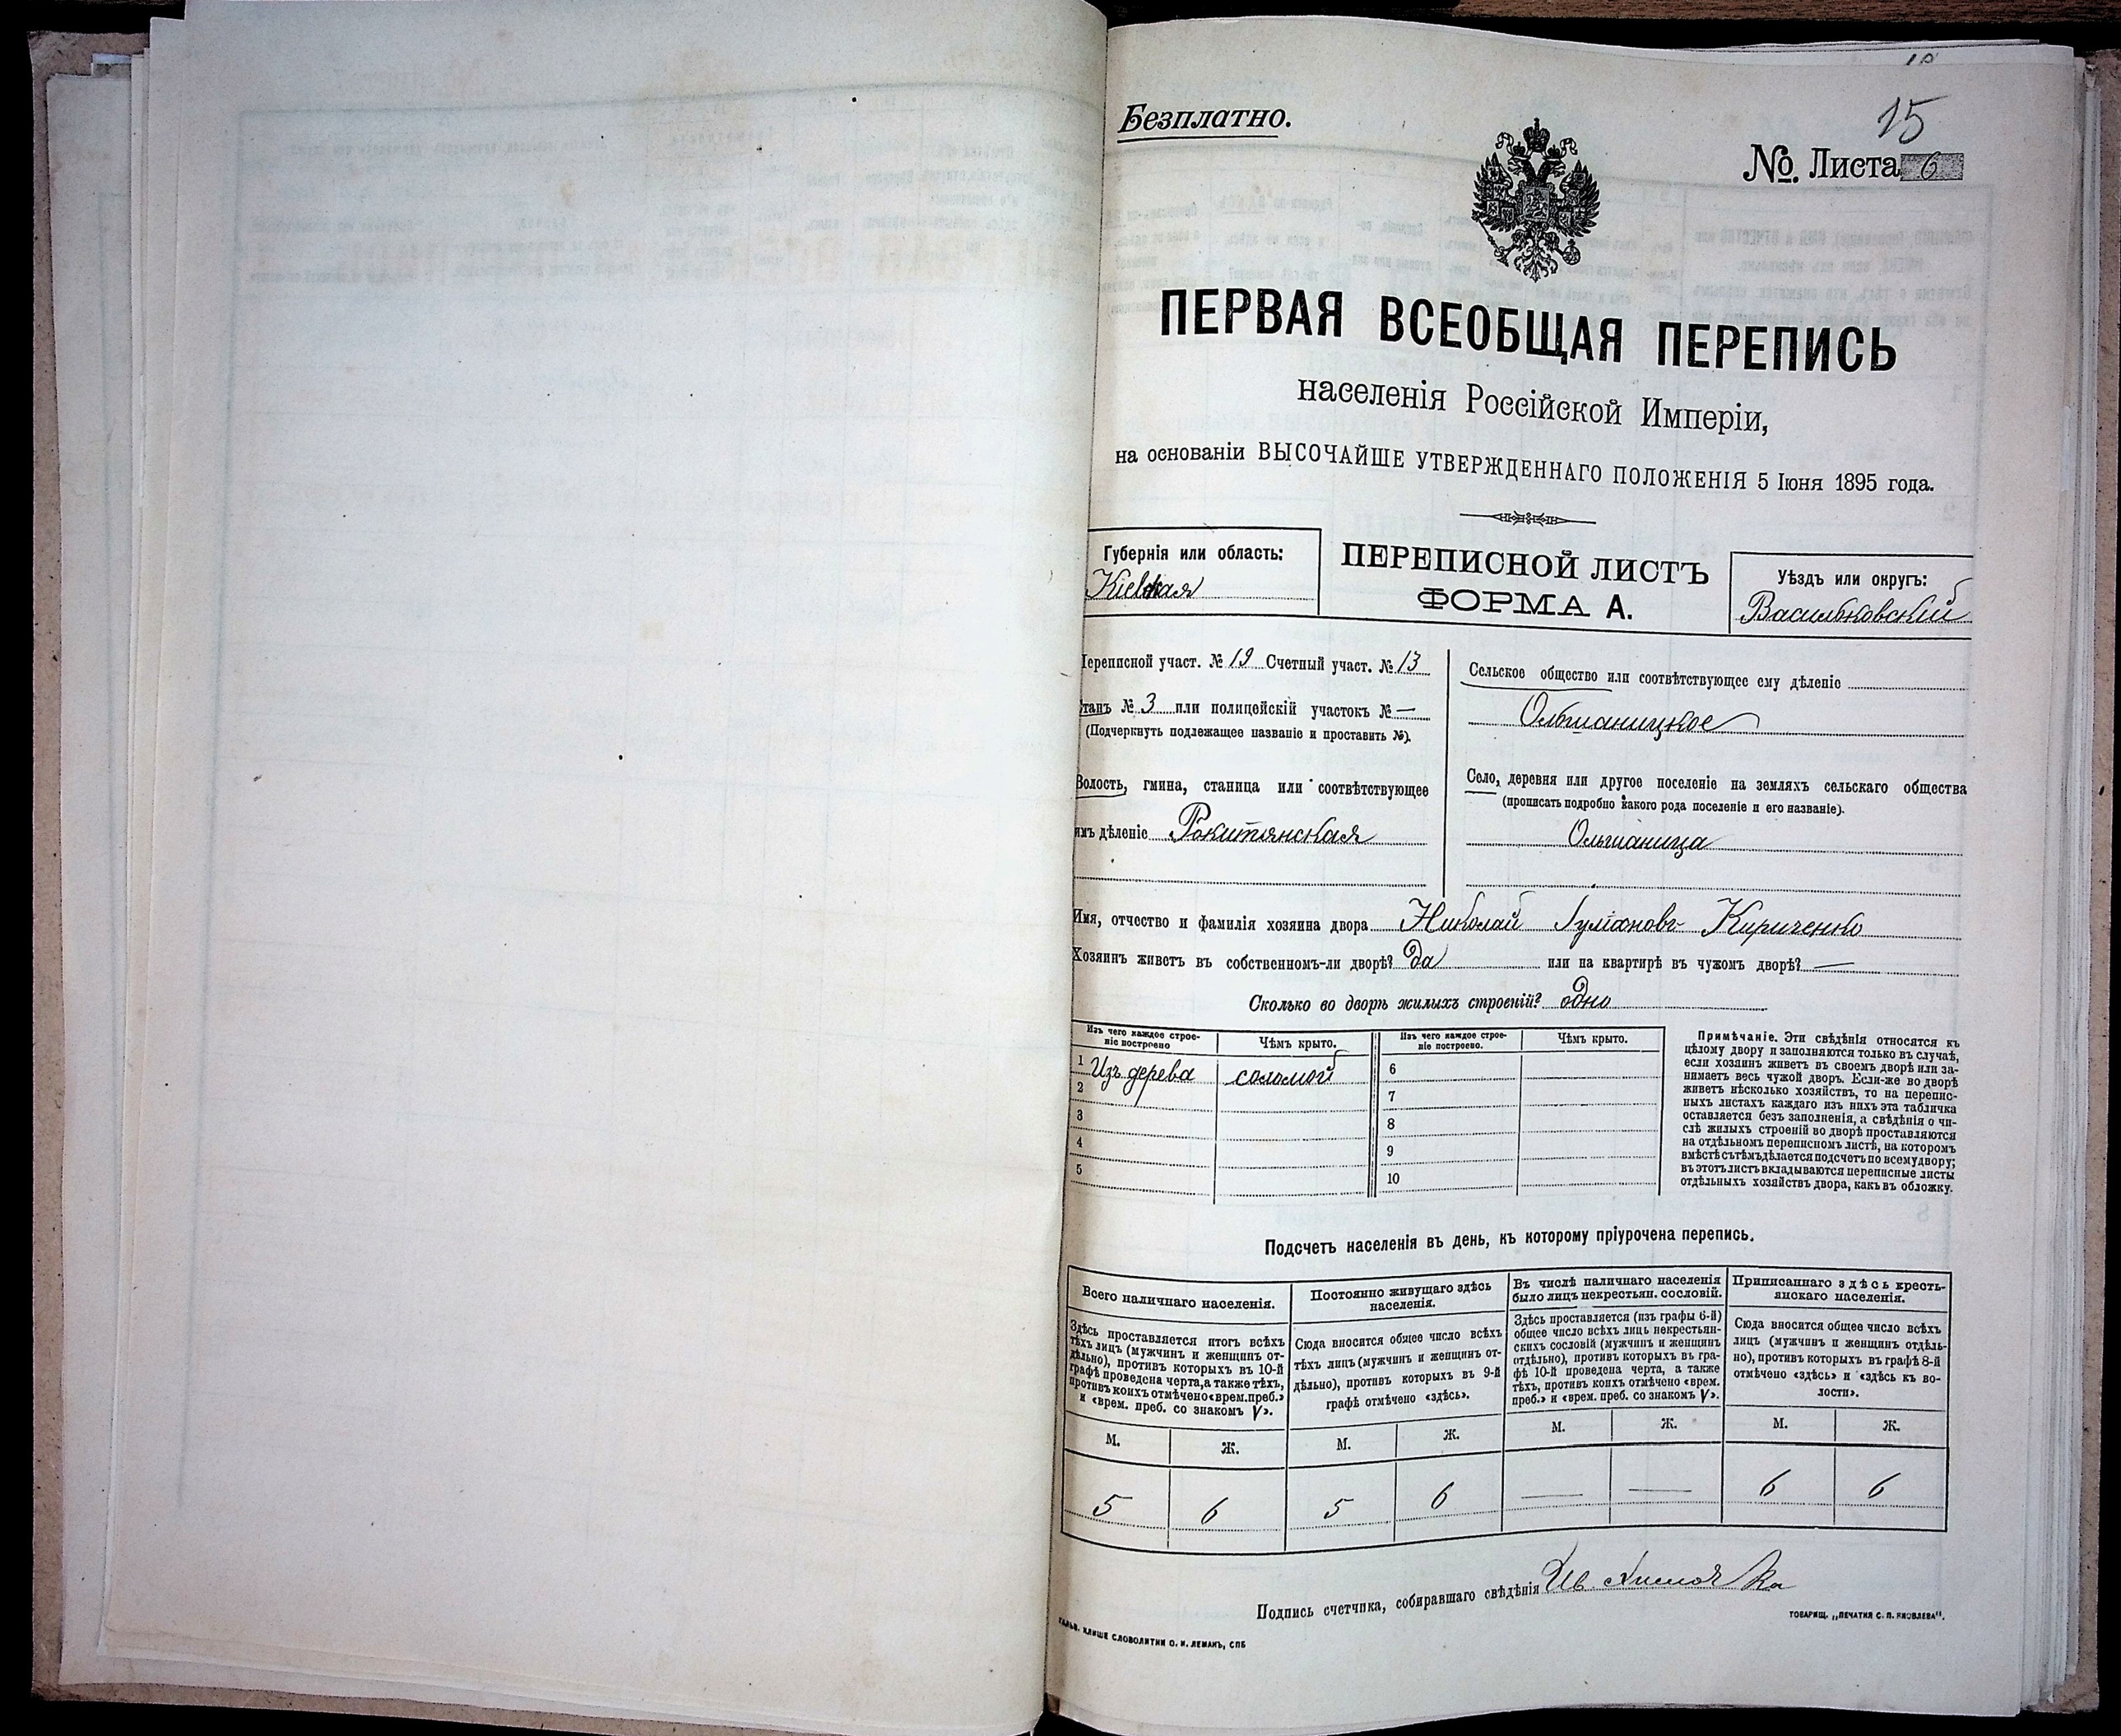 Безплатно.
15
№ Листа 6
ПЕРВАЯ ВСЕОБЩАЯ ПЕРЕПИСЬ
населенія Россійской Имперіи,
на основаніи ВЫСОЧАЙШЕ УТВЕРЖДЕННАГО ПОЛОЖЕНІЯ 5 Іюня 1895 года.
Губернія или область:
Кіевская
ПЕРЕПИСНОЙ ЛИСТЪ
ФОРМА А.
Уѣздъ или округъ:
Васильковский
Переписной участ. № 19 Счетный участ. № 13
Станъ № 3 или полицейскій участокъ № —
(Подчеркнуть подлежащее названіе и проставить №).
Волость, гмина, станица или соотвѣтствующее
имъ дѣленіе Рокитянская
Сельское общество или соотвѣтствующее ему дѣленіе
Ольшаницкое
Село, деревня или другое поселеніе на земляхъ сельскаго общества
(прописать подробно какого рода поселеніе и его названіе).
Ольшаница
Имя, отчество и фамилія хозяина двора Николай Кириченко
Хозяинъ живетъ въ собственномъ-ли дворѣ? да или на квартирѣ въ чужомъ дворѣ? —
Сколько во дворѣ жилыхъ строеній? одно
Изъ чего каждое строе-
ніе построено
Чѣмъ крыто.
1 Изъ дерева соломой
2
3
4
5
Изъ чего каждое строе-
ніе построено.
Чѣмъ крыто.
6
7
8
9
10
Примѣчаніе. Эти свѣдѣнія относятся къ
цѣлому двору и заполняются только въ случаѣ,
если хозяинъ живетъ въ своемъ дворѣ или за-
нимаетъ весь чужой дворъ. Если-же во дворѣ
живетъ нѣсколько хозяйствъ, то на перепис-
ныхъ листахъ каждаго изъ нихъ эта табличка
оставляется безъ заполненія, а свѣдѣнія о чи-
слѣ жилыхъ строеній во дворѣ проставляются
на отдѣльномъ переписномъ листѣ, на которомъ
вмѣстѣ съ тѣмъ дѣлается подсчетъ по всему двору;
въ этотъ листъ вкладываются переписные листы
отдѣльныхъ хозяйствъ двора, какъ въ обложку.
Подсчетъ населенія въ день, къ которому пріурочена перепись.
Всего наличнаго населенія.
Здѣсь проставляется итогъ всѣхъ
тѣхъ лицъ (мужчинъ и женщинъ от-
дѣльно), противъ которыхъ въ 10-й
графѣ проведена черта, а также тѣхъ,
противъ коихъ отмѣчено «врем. преб.»
и «врем. преб. со знакомъ V».
М. Ж.
5 6
Постоянно живущаго здѣсь
населенія.
Сюда вносится общее число всѣхъ
тѣхъ лицъ (мужчинъ и женщинъ от-
дѣльно), противъ которыхъ въ 9-й
графѣ отмѣчено «здѣсь».
М. Ж.
5 6
Въ числѣ наличнаго населенія
было лицъ некрестьян. сословій.
Здѣсь проставляется (изъ графы 6-й)
общее число всѣхъ лицъ некрестьян-
скихъ сословій (мужчинъ и женщинъ
отдѣльно), противъ которыхъ въ гра-
фѣ 10-й проведена черта, а также
тѣхъ, противъ коихъ отмѣчено «врем.
преб.» и «врем. преб. со знакомъ V».
М. Ж.
— —
Приписаннаго здѣсь кресть-
янскаго населенія.
Сюда вносится общее число всѣхъ
лицъ (мужчинъ и женщинъ отдѣль-
но), противъ которыхъ въ графѣ 8-й
отмѣчено «здѣсь» и «здѣсь къ во-
лости».
М. Ж.
6 6
Подпись счетчика, собиравшаго свѣдѣнія Ив.
ТОВАРИЩ. „ПЕЧАТНЯ С. П. ЯКОВЛЕВА".
КЛИШЕ СЛОВОЛИТНИ О. И. ЛЕМАНЪ, СПБ